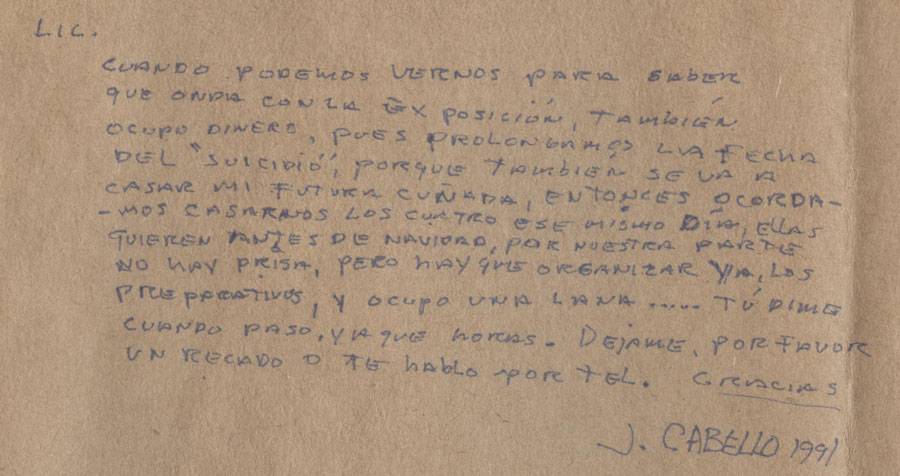 LIC.
CUANDO PODEMOS VERNOS PARA SABER
QUE ONDA CON LA EXPOSICIÓN, TAMBIÉN
OCUPO DINERO, PUES PROLONGAMOS LA FECHA
DEL "SUICIDIO", PORQUE TAMBIEN SE VA A
CASAR MI FUTURA CUÑADA, ENTONCES OCORDA-
-MOS CASARNOS LOS CUATRO ESE MISMO DÍA, ELLAS
QUIEREN ANTES DE NAVIDAD, POR NUESTRA PARTE
NO HAY PRISA, PERO HAY QUE ORGANIZAR YA, LOS
PREPARATIVOS, Y OCUPO UNA LANA ..... TÚ DIME
CUANDO PASO, Y A QUE HORAS. DEJAME, POR FAVOR
UN RECADO O TE HABLO POR TEL. GRACIAS
J. CABELLO 1991